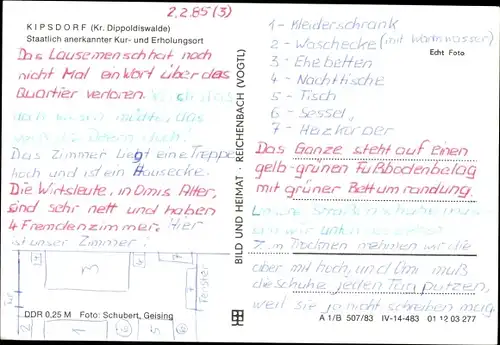 2.2.85 (3)
KIPSDORF (Kr. Dippoldiswalde)
Staatlich anerkannter Kur- und Erholungsort
Das Lausemensch hat noch
nicht Mal ein Wort über das
Quartier verloren.
Das Zimmer liegt eine Treppe
hoch und ist ein Hausecke.
Die Wirtsleute, in Omis Alter,
sind sehr nett und haben
4 Fremdenzimmer. Hier
ist unser Zimmer:
3
4
7
Fenster
Tür
2
1
5
6
DDR 0,25 M Foto: Schubert, Geising
BILD UND HEIMAT · REICHENBACH (VOGTL)
1 - Kleiderschrank
2 - Waschecke (mit Warmwasser)
Echt Foto
3 - Ehebetten
4 - Nachttische
5 - Tisch
6 - Sessel
7 - Heizkörper
Das Ganze steht auf einen
gelb-grünen Fußbodenbelag
mit grüner Bettumrandung.
Unsere Straßenschuhe
wir unten
Zum Trocknen nehmen wir die
aber mit hoch, und Omi muß
die Schuhe jeden Tag putzen,
weil sie ja nicht schreiben mag
A 1/B 507/83 IV-14-483 01 12 03 277